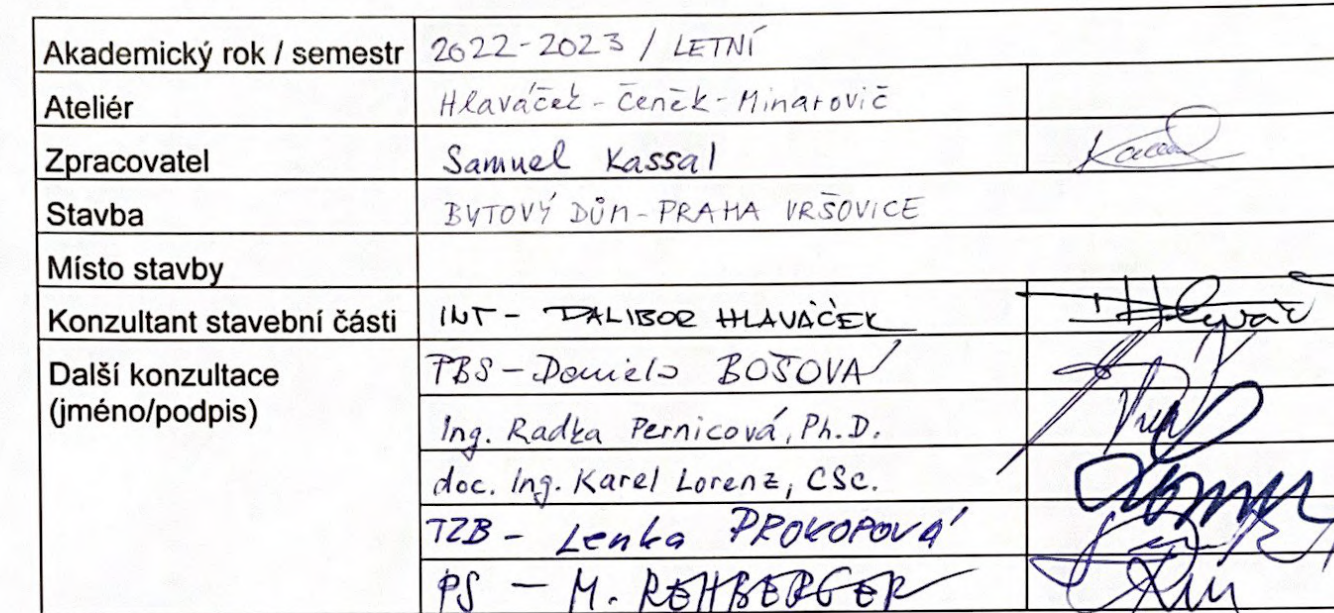 Akademický rok / semestr 2022-2023 / LETNÍ
Ateliér Hlaváček-Čeněk-Minarovič
Zpracovatel Samuel Kassal
Stavba BYTOVÝ DŮM-PRAHA VRŠOVICE
Místo stavby
Konzultant stavební části INT - DALIBOR HLAVÁČEK
Další konzultace PBS - Daniela BOŠOVÁ
(jméno/podpis)
Ing. Radka Pernicová, Ph.D.
doc. Ing. Karel Lorenz, CSc.
TZB - Lenka PROKOPOVÁ
PS - M. REHBERGER